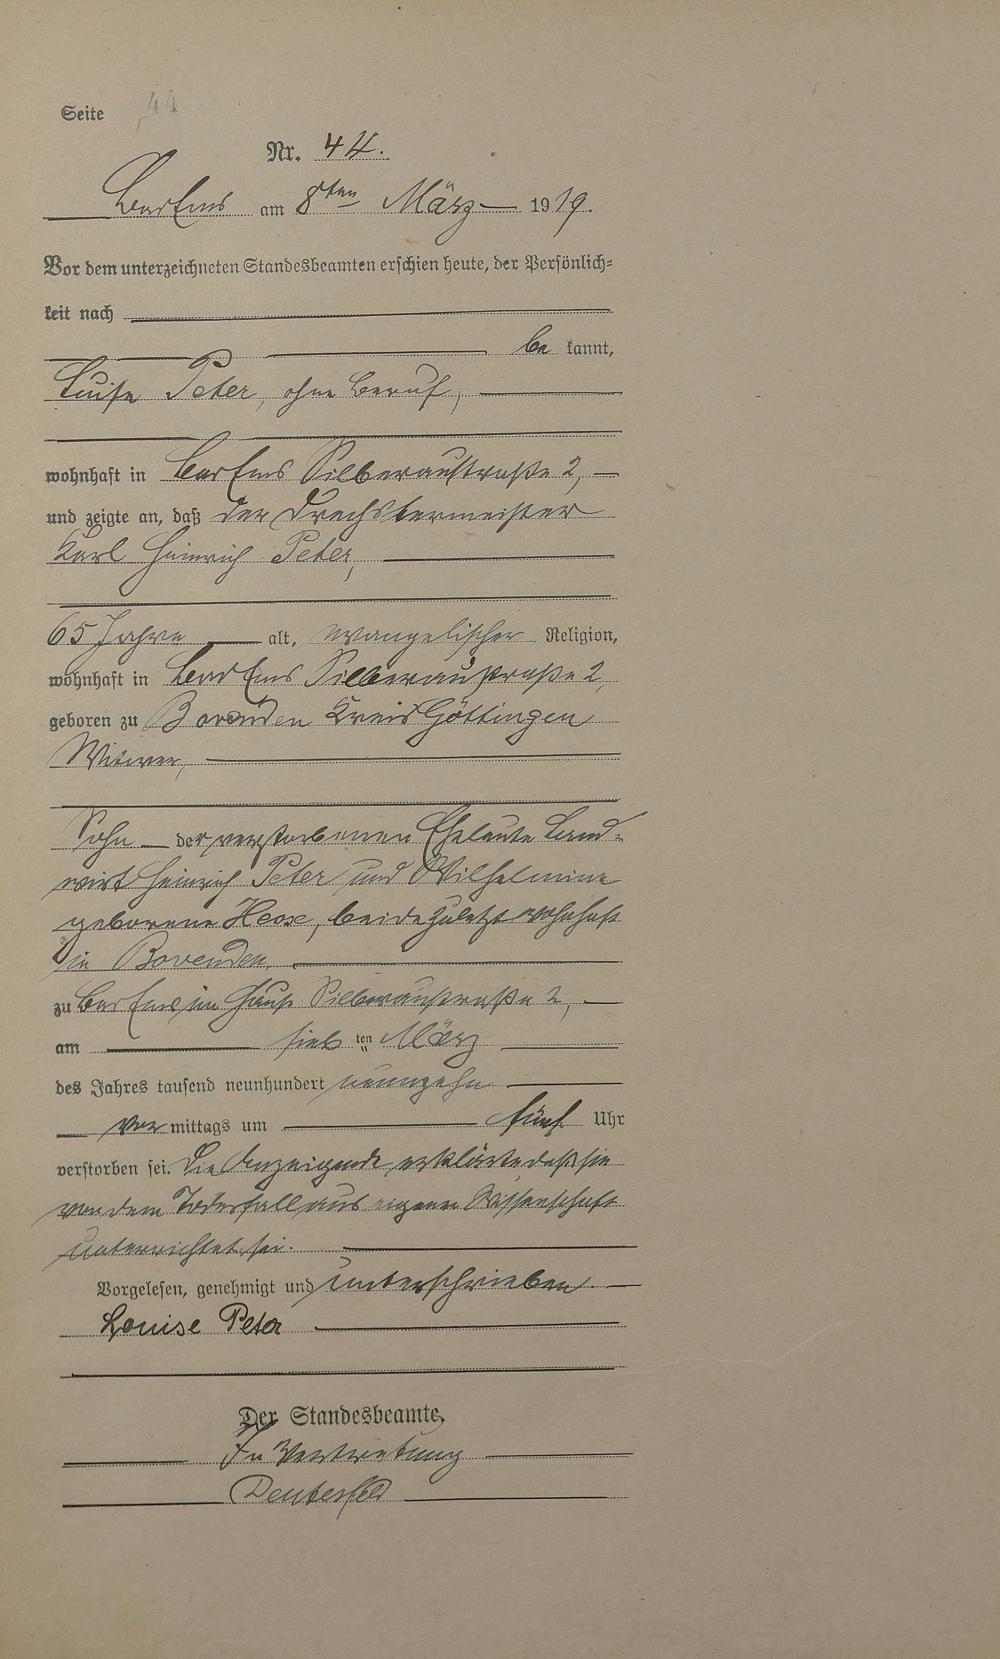 Seite 44
Nr. 44.
Bad Ems am 8ten März 1919.
Vor dem unterzeichneten Standesbeamten erschien heute, der Persönlich-
keit nach
be kannt,
Luise Peter, ohne Beruf,
wohnhaft in Bad Ems Silberaustraße 2,
und zeigte an, daß der Drechslermeister
Karl Heinrich Peter,
65 Jahre alt, evangelischer Religion,
wohnhaft in Bad Ems Silberaustraße 2,
geboren zu Bovenden Kreis Göttingen
Witwer,
Sohn der verstorbenen Eheleute Land-
wirt Heinrich Peter und Wilhelmine
geborene, beide zuletzt wohnhaft
in Bovenden,
zu Bad Ems im Hause Silberaustraße 2,
am sieb ten März
des Jahres tausend neunhundert neunzehn
vor mittags um fünf Uhr
verstorben sei. Die Anzeigende erklärte daß sie
von dem Todesfall aus eigener Wissenschaft
unterrichtet sei.
Vorgelesen, genehmigt und unterschrieben.
Louise Peter
Der Standesbeamte,
In Vertretung